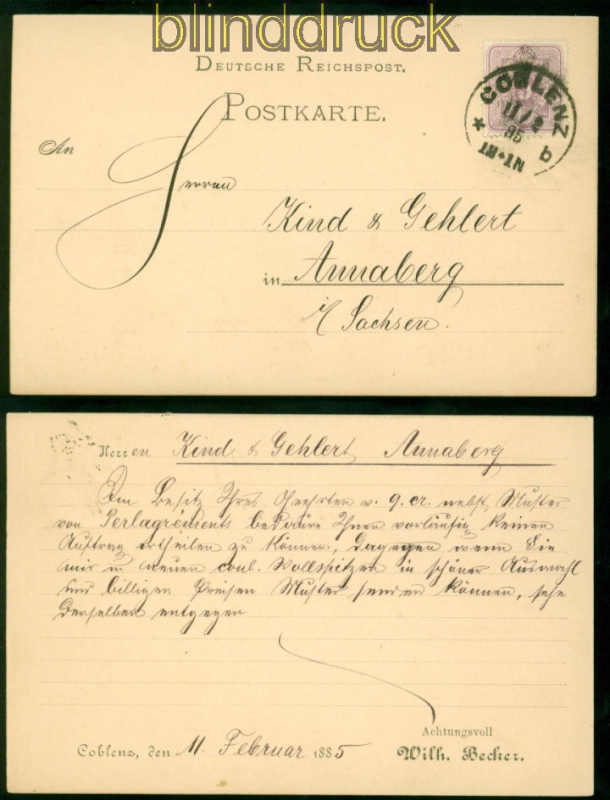 blinddruck
DEUTSCHE REICHSPOST.
POSTKARTE.
COBLENZ
11/2
85
b
An
Herren
Kind & Gehlert
in Annaberg
i/ Sachsen.
Herren Kind & Gehlert, Annaberg
Im Besitz Ihres Geehrten v. 9. cr. nebst Muster
von Perlagréments bedaure Ihnen vorläufig keinen
Auftrag ertheilen zu können, dagegen wenn Sie
mir in neuen coul. Wollspitzen in schöner Auswahl
und billigen Preisen Muster senden können, sehe
denselben entgegen
Achtungsvoll
Coblenz, den 11. Februar 1885 Wilh. Becker.